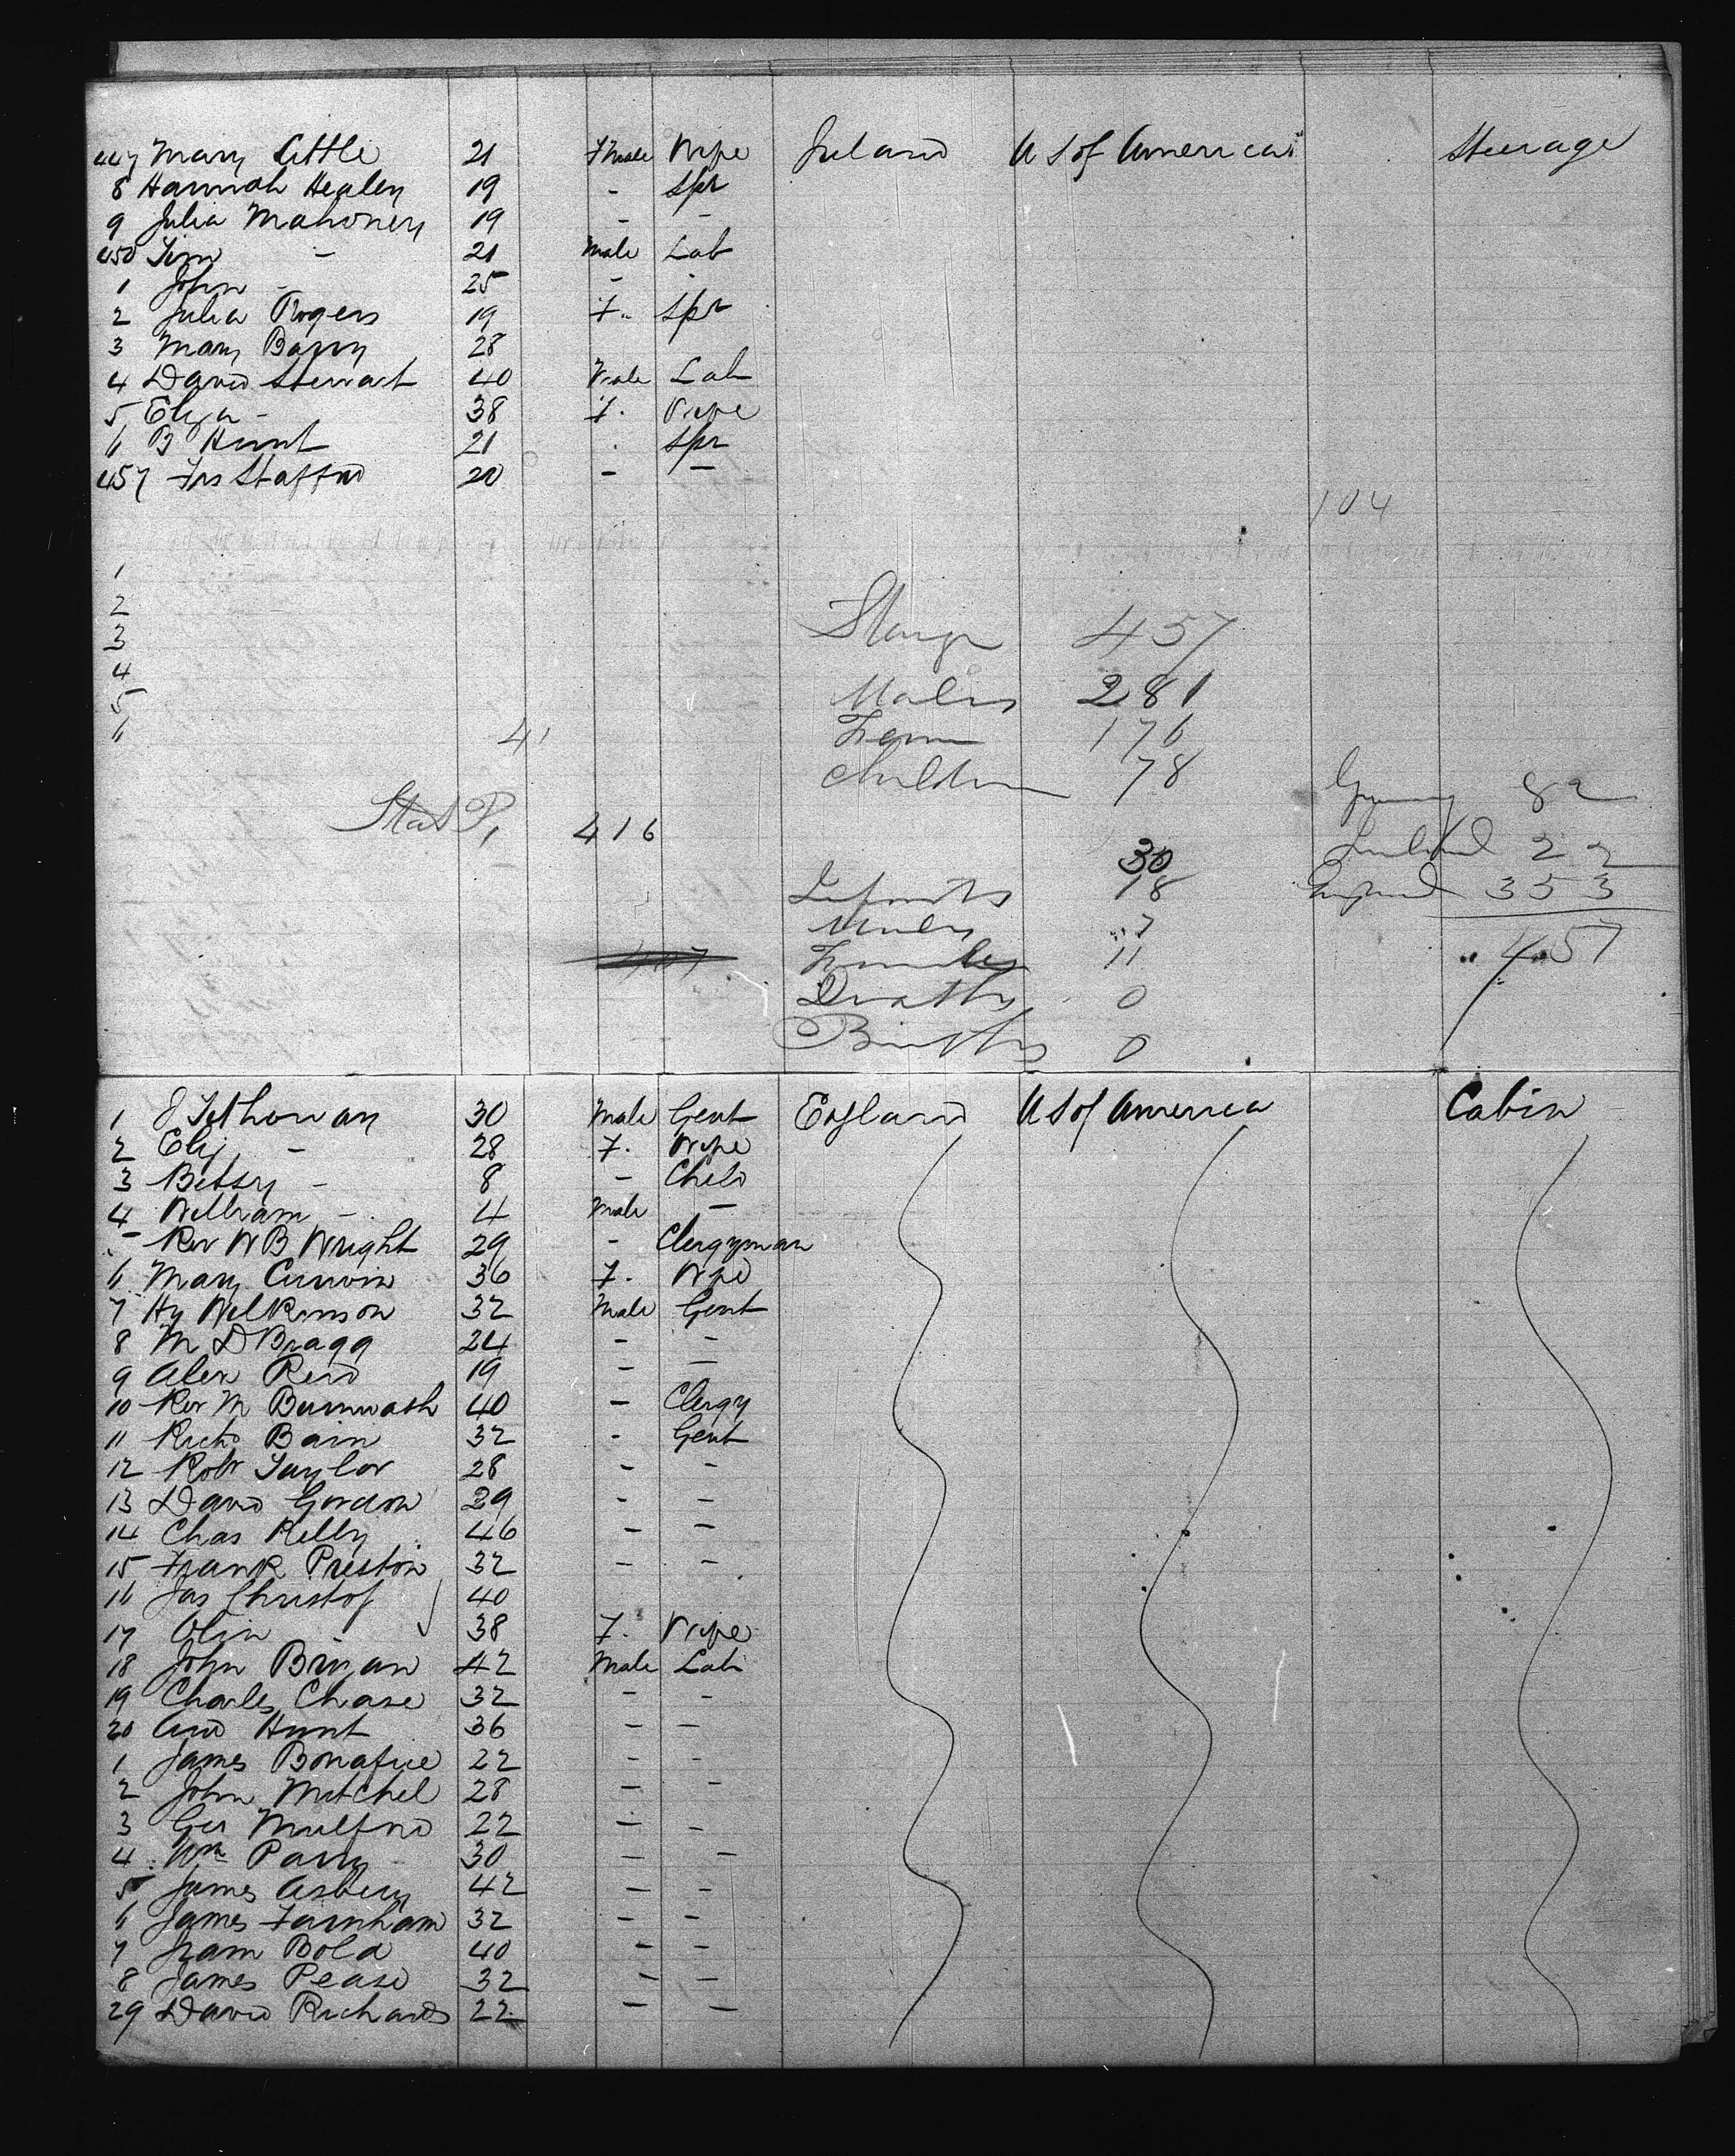 447 Mary Little 21 Fmale Wife Ireland U S of America Steerage
8 Hannah Healey 19 - Spr
9 Julia Mahoney 19 - -
450 Tim - 21 Male Lab
1 John - 25 - -
2 Julia Rogers 19 F. Spr
3 Mary Barry 28
4 David Stewart 40 Male Lab
5 Eliza - 38 F. Wife
6 B Hunt 21 . Spr
457 Fas Stafford 20 - -
104
1
2
3
4
5
6
457
Males 281
Fem 176
41
Children 78
Germany 82
416
Ireland 22
30
Infants 18
England 353
Males 7
457
Females 11
Deaths 0
Births 0
1 30 Male Gent England U S of America Cabin
2 Eliz - 28 F. Wife
3 Betsy - 8 - Child
4 William - 4 Male -
5 Rev W B Wright 29 - Clergyman
6 Mary Curwin 36 F. Wife
7 Hy Wilkinson 32 Male Gent
8 M D Bragg 24 - -
9 Alex Reid 19 - -
10 Rev M Burnwash 40 - Clergy
11 Richd Bain 32 - Gent
12 Robt Taylor 28 - -
13 David Gordon 29 - -
14 Chas Kelly 46 - -
15 Frank Preston 32 - -
16 Jas Christof 40
17 38 F. Wife
18 John Bryan 42 Male Lab
19 Charles Chase 32 - -
20 And Hunt 36 - -
1 James 22 - -
2 John Mitchel 28 - -
3 Geo Mulford 22 - -
4 Wm Parry 30 - -
5 James Asbury 42 - -
6 James Farnham 32 - -
7 Bold 40 - -
8 James Pease 32 - -
29 David Richards 22 - -